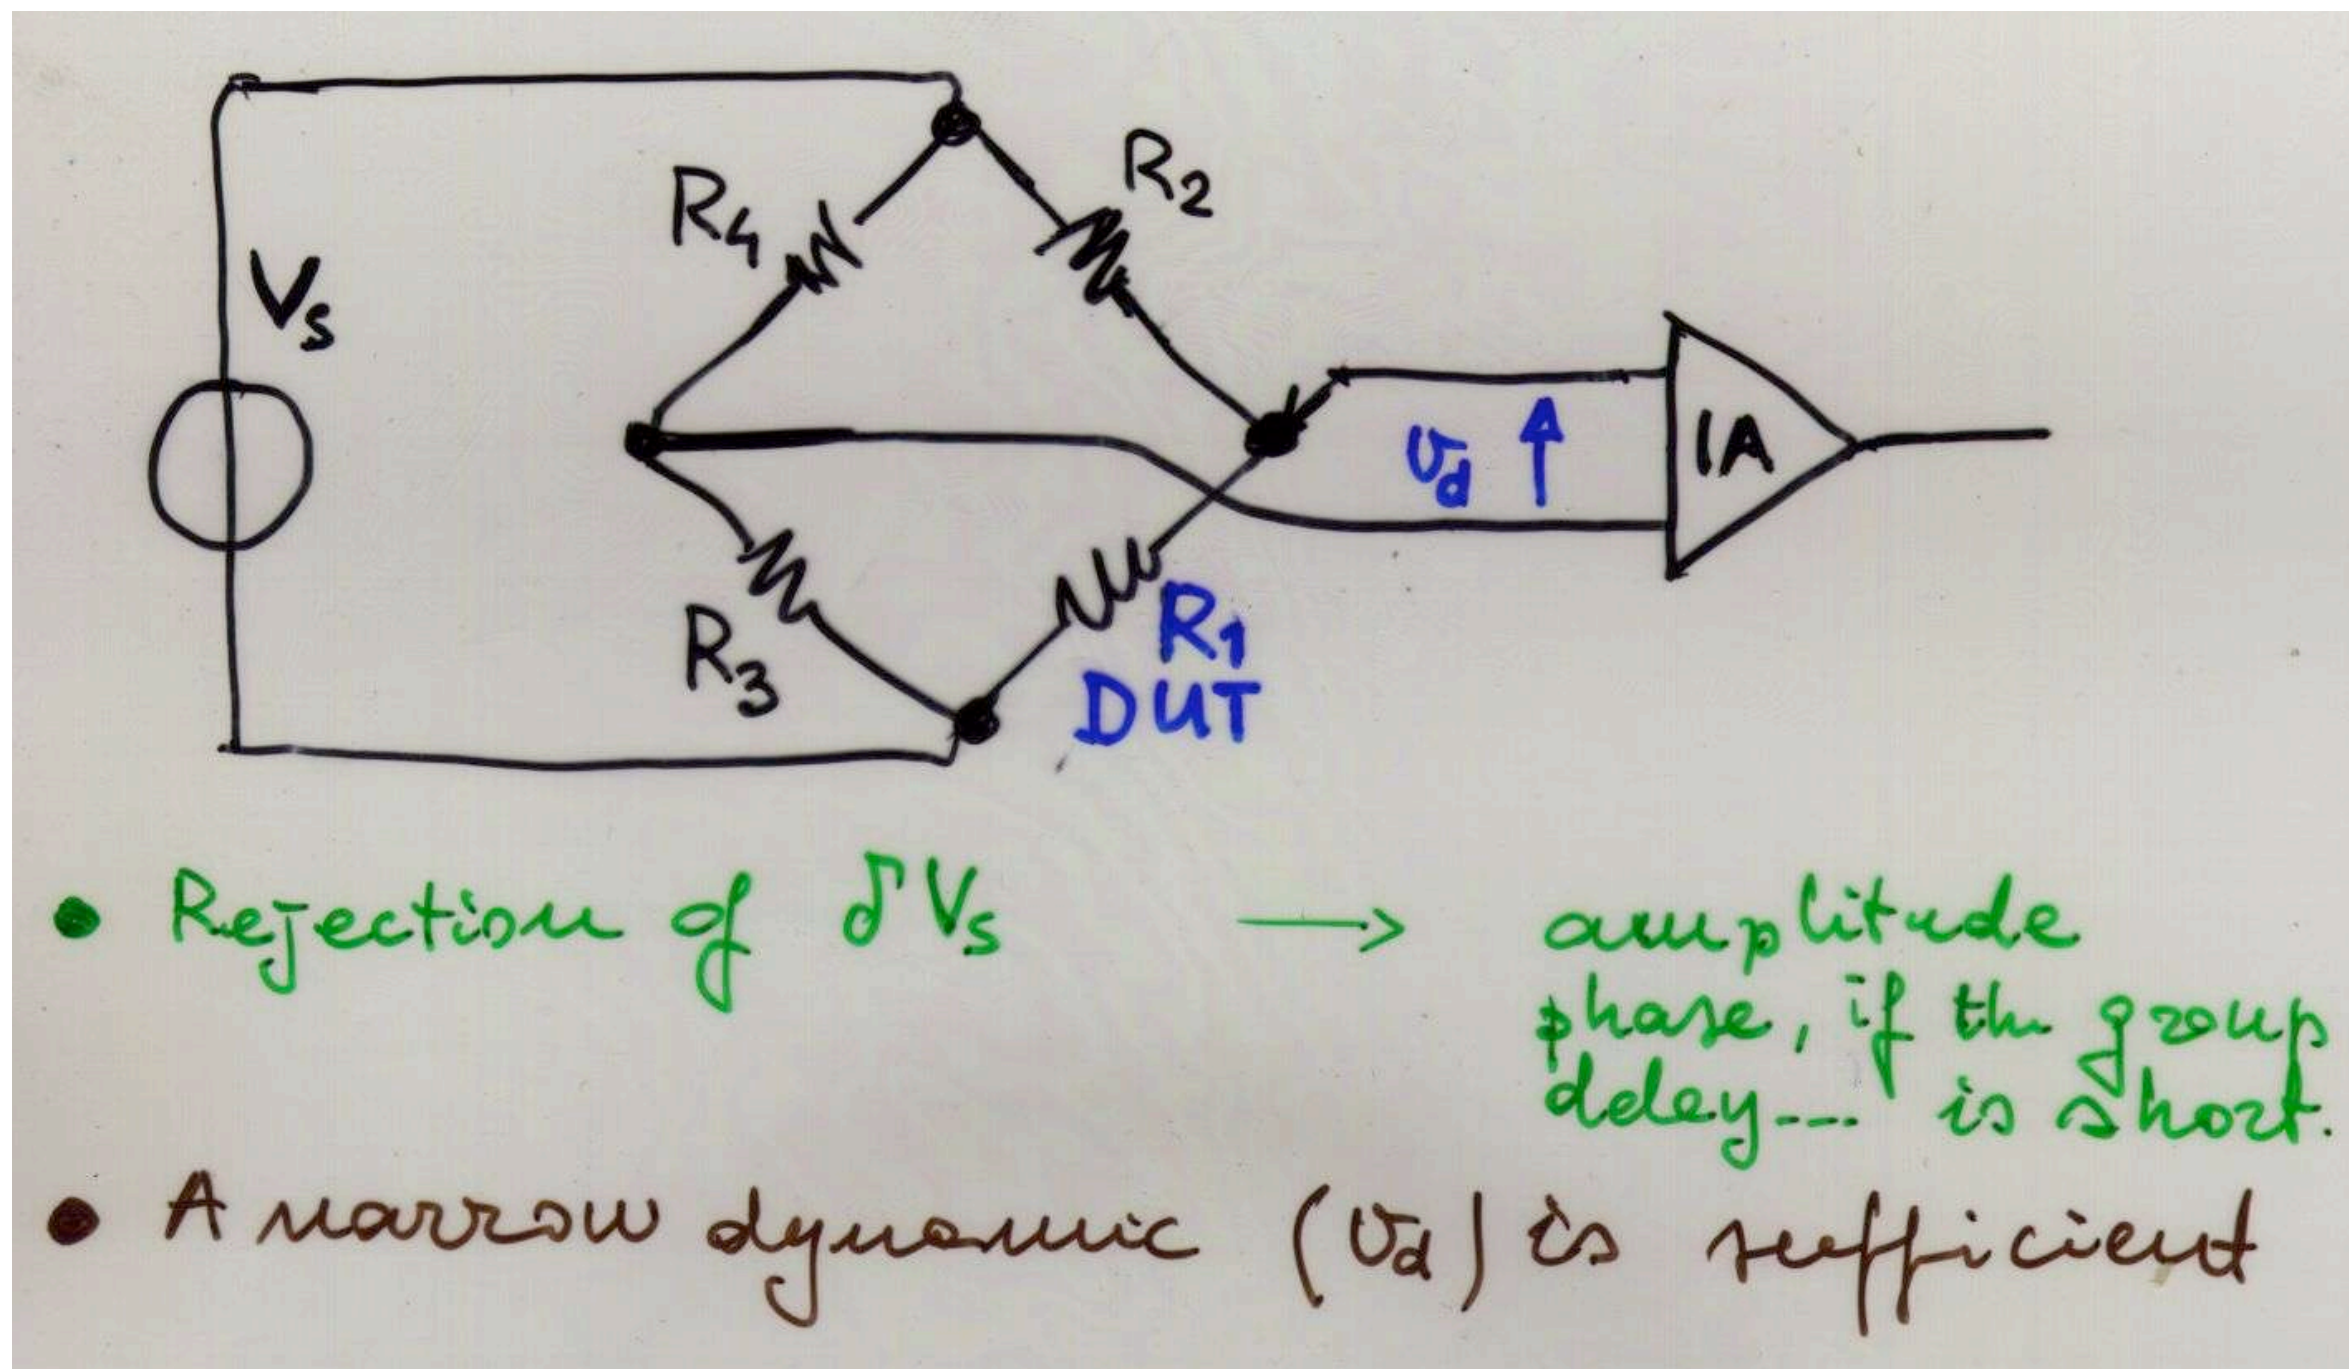 R₂
R₄
Vₛ
υ_d
IA
R₁
R₃
DUT
• Rejection of δVₛ → amplitude
phase, if the group
delay--- is short.
• A narrow dynamic (υ_d) is sufficient